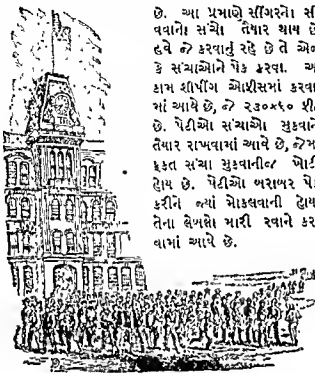 છે. આ પ્રમાણે સીંગરનો સી
વવાનો સંચો તૈયાર થાય છે
હવે જે કરવાનું રહે છે તે એન
કે સંચાઓને પેક કરવા. આ
કામ શીપીંગ ઓફીસમાં કરવા
માં આવે છે, જે ૨૩૦×૬૦ શી
છે. પેટીઓ સંચાઓ મુકવાને
તૈયાર રાખવામાં આવે છે, જેમ
ફકત સંચા મુકવાનીજ ખોટી
હોય છે. પેટીઓ બરાબર પે
કરીને જ્યાં મોકલવાની હોય
તેના લેબલો મારી રવાને કર
વામાં આવે છે.